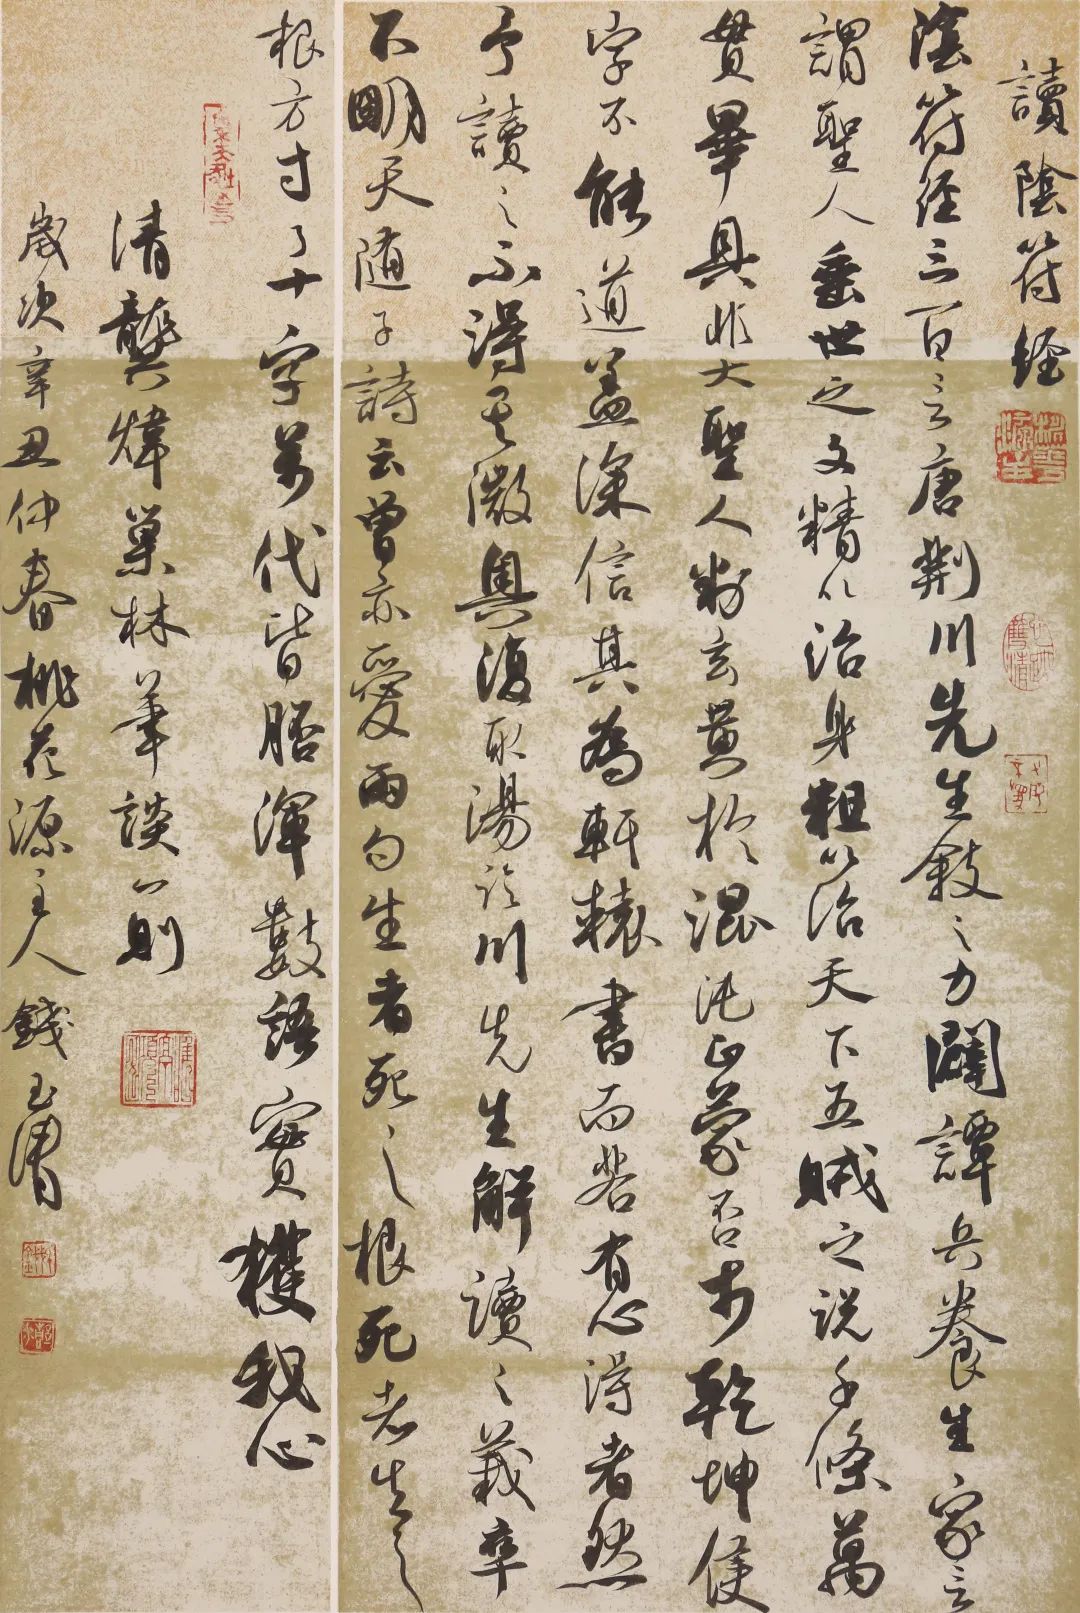 讀陰符經
陰符经三百言唐荆川先生敍之力闢譚兵養生家言
謂聖人垂世之文精以治身粗以治天下五賊之說千條萬
貫畢具非大聖人剖玄黃於混沌正蒙否於乾坤隻
字不能道盖深信其為軒轅書而若有心得者然
予讀之不得其微奥復取湯臨川先生解讀之義率
不明天随子詩云曾亦愛兩句生者死之根死者生之
根方寸了十字萬代皆胚渾數語實獲我心
清龔煒巢林筆談一則
歲次辛丑仲春桃花源主人錢玉